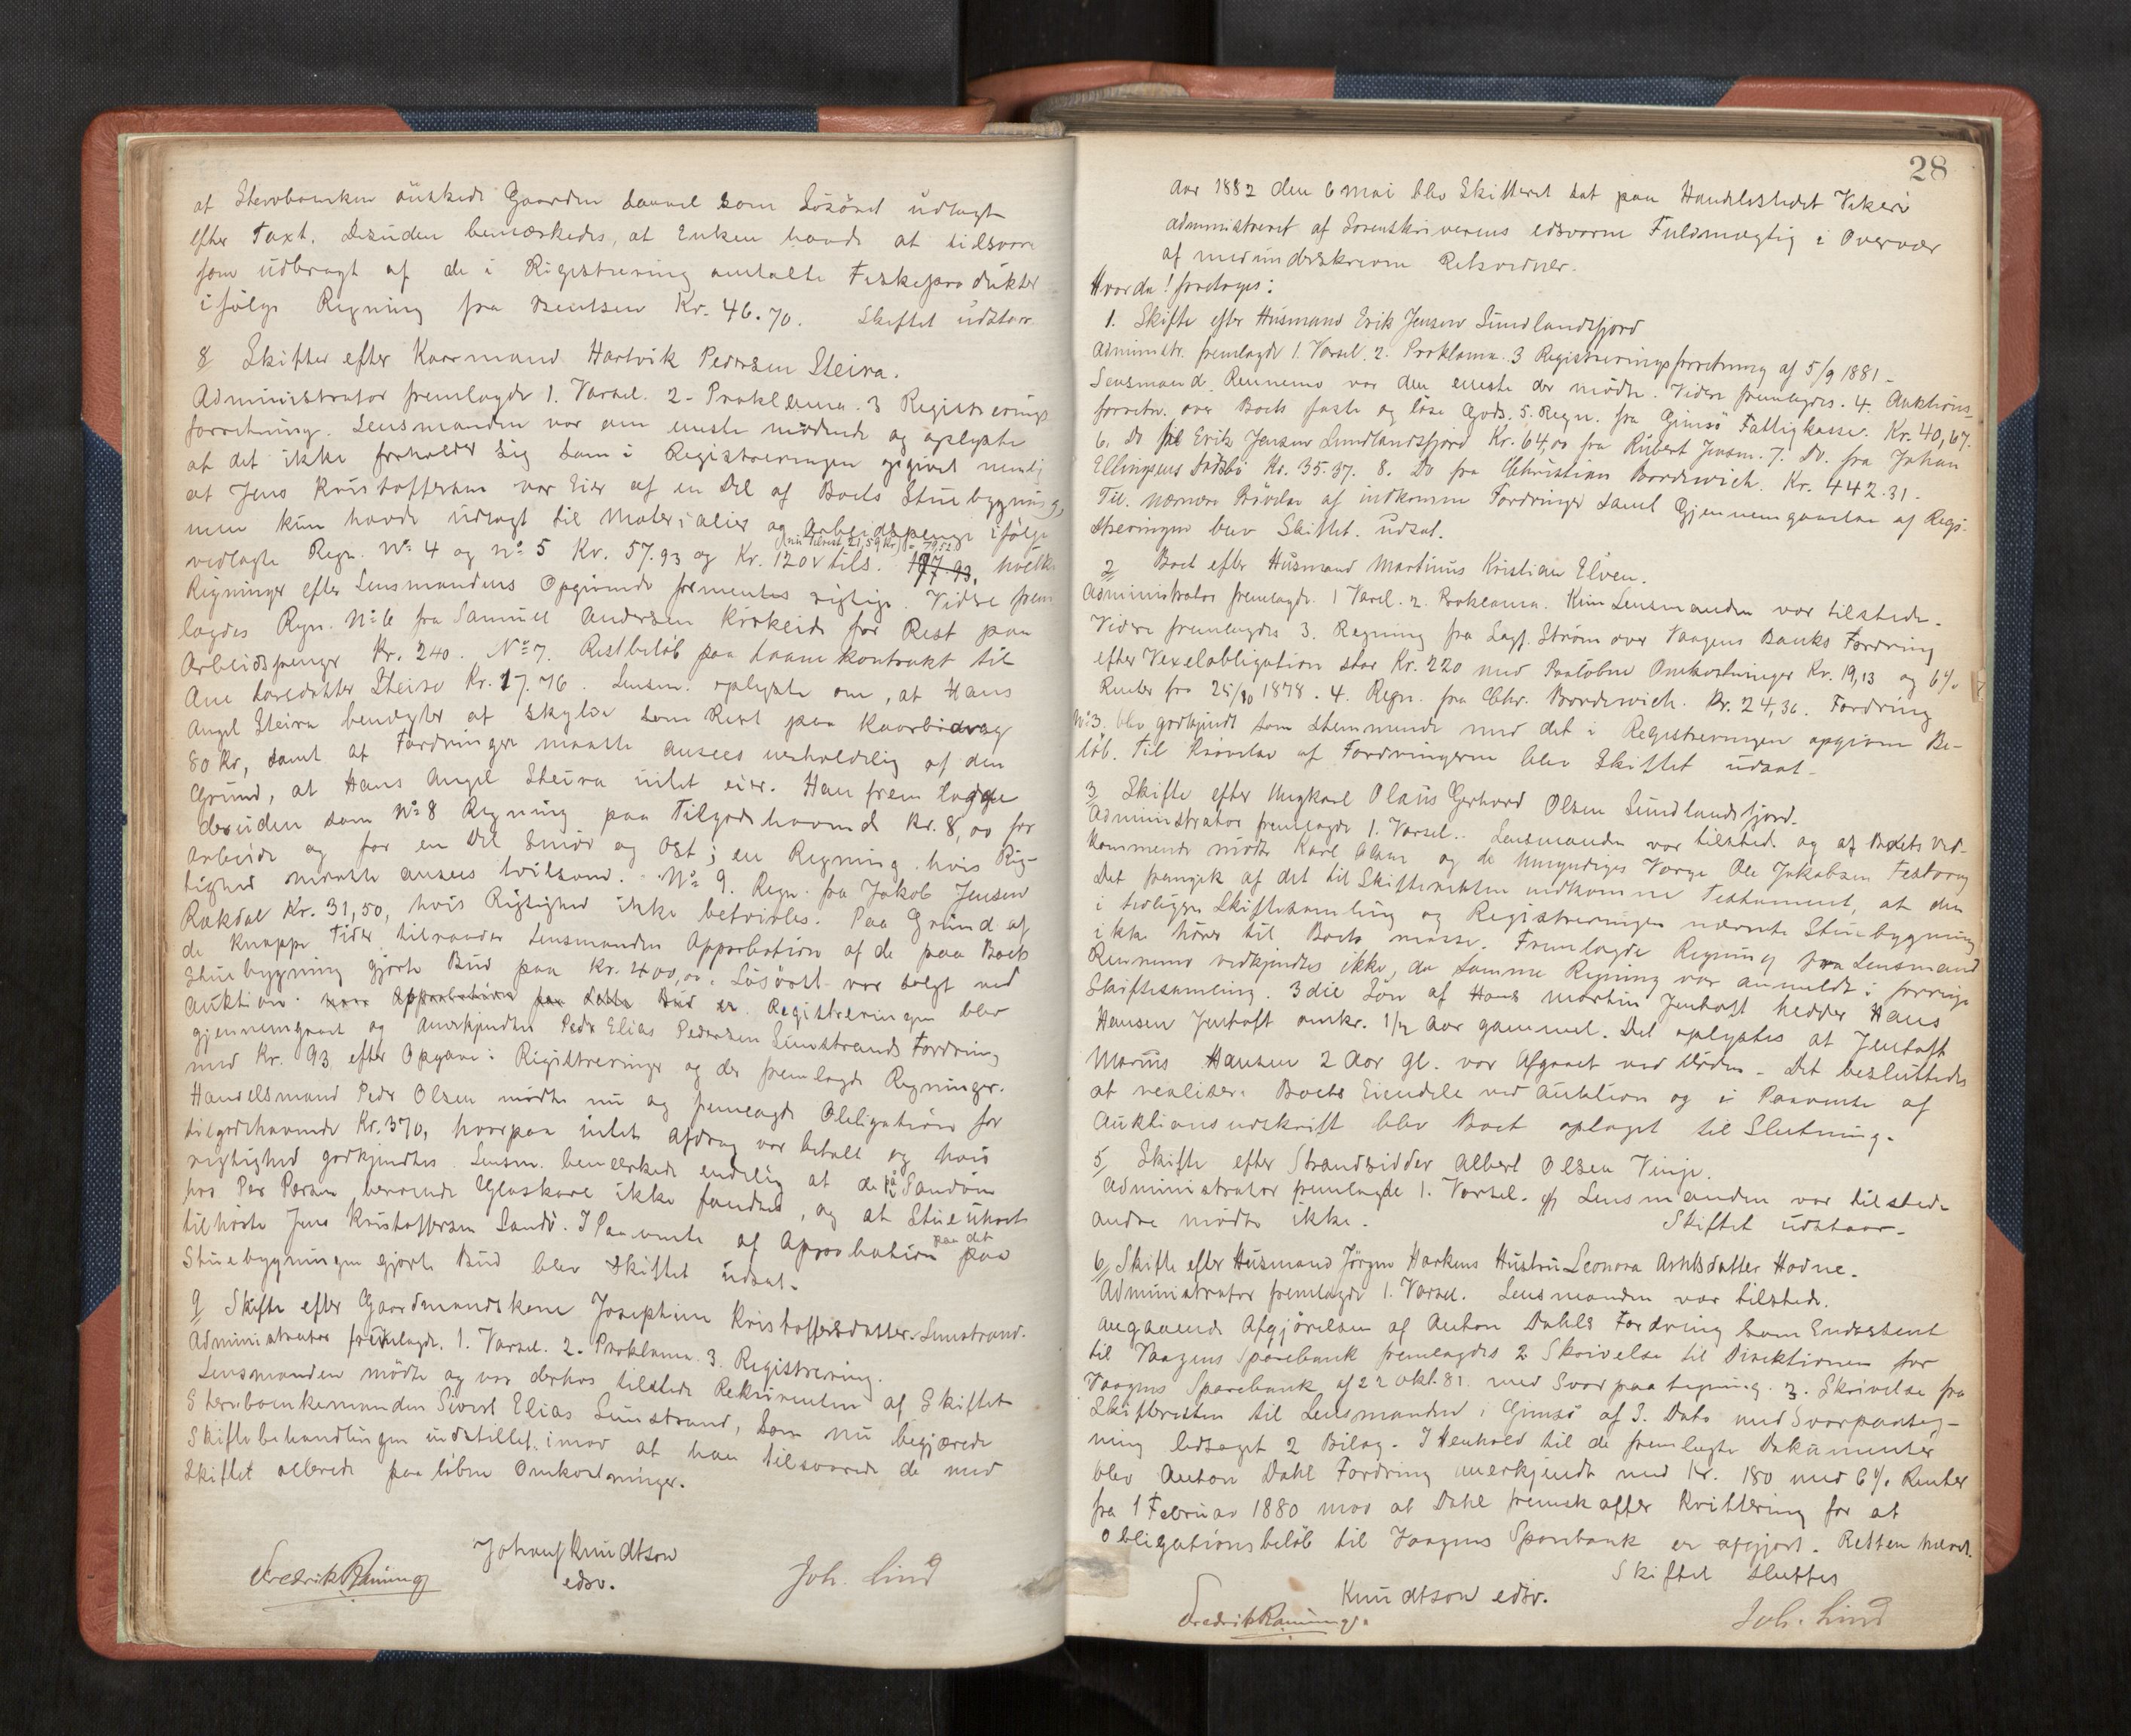 at Stervboenken önskede Gaarden saavel som Lösöret udlagt
efter Taxt. Desuden bemærkedes, at Enken havde at tilsvare
som udbragt af de i Registrering antalte Fiskeprodukter
ifölge Regning fra Bentsen Kr. 46.70. Skiftet udstaar
8 Skifter efter Kaarmand Hartvik Pedersen Steira.
Administrator fremlagde 1. Varsel. 2. Proklama. 3 Registrerings
forretning. Lensmanden var en eneste mødende og oplyste
at det ikke forholder sig som i Registreringen opgivet nemlig
at Jens Kristoffersen var Eier af en Del af Boets Stuebygning,
men kun havde udlagt til Materialier og Arbeidspenge ifölge
vedlagte Regn. No 4 og No 5 Kr. 57.93 og Kr. 120 tils. 177.93, hvilke
Regninger efter Lensmandens Opgivende formentes rigtige. Videre frem
lagdes Regn. No 6 fra Samuel Andersen Kirkeide for Rest paa
Arbeidspenger Kr. 240. No 7. Restbeløb paa Laanekontrakt til
Ane Larsdatter Steiro Kr. 17.76. Lensm. oplyste om, at Hans
Angel Steira benegter at skylde som Rest paa Kaarbidrag
80 Kr, samt at Fordringen maatte ansees uerholdelig af den
Grund, at Hans Angel Steira intet eier. Han fremlagde
desuden som No 8 Regning paa Tilgodehavende Kr. 8,00 for
Arbeide og for en Del Smör og Ost; en Regning, hvis Rig-
tighed maatte ansees tvilsom. No 9. Regn. fra Jakob Jensen
Rækdal Kr. 31,50, hvis Rigtighed ikke betvivles. Paa Grund af
de knappe Tider tilraader Lensmanden Approbation af de paa Boets
Stuebygning gjorte Bud paa Kr. 400,00. Lösöret var solgt ved
Auktion. naar Approbation paa dette Bud er. Registreringen blev
gjennemgaaet og Anerkjendtes Peder Elias Pedersen Sunstrands Fordring
med Kr. 93 efter Opgave i Registreringen og de fremlagde Regninger.
Handelsmand Peder Olsen mødte nu og fremlagde Obligation for
tilgodehavende Kr. 370, hvorpaa intet Afdrag var betalt og hvis
rigtighed godkjendtes. Lensm. bemærkede endelig at de i Sandöen
hos Per Persen beroende Glaskare ikke fandtes, og at Stueuhret
tilhørte Jens Kristoffersen Sandö. I Paavente af Approbation paa det paa
Stuebygningen gjorte Bud blev Skiftet udsat.
9 Skifte efter Gaardmandskone Josephine Kristoffersdatter Sunstrand.
Administrator fremlagde. 1. Varsel. 2. Proklama 3. Registrering.
Lensmanden mødte og var derhos tilstede Rekvirenten af Skiftet
Stervboenkemanden Sivert Elias Sunstrand, som nu begjærede
Skiftebehandlingen indstillet, imod at han tilsvarede de med
Skiftet allerede paaløbne Omkostninger.
Johan Knudtson
edsv.
Fredrik Rønning
Joh. Lind
28
Aar 1882 den 6 mai blev Skifteret sat paa Handelsstedet Vikeri
administreret af Sorenskriverens edsvorne Fuldmægtig i Overvær
af medunderskrevne Retsvidner.
Hvorda! foretoges:
1. Skifte efter Husmand Erik Jensen Sundlandsfjord
Administr. fremlagde 1. Varsel. 2. Proklama. 3 Registreringsforretning af 5/9 1881.
Lensmand. Rennemo var den eneste der mødte. Videre fremlagdes. 4. Auktions-
forretn. over Boets faste og löse Gods. 5. Regn. fra Gimsö Fattigkasse. Kr. 40,67.
6. Do fra Erik Jensen Sundlandsfjord Kr. 64,00 fra Rubert Jensen. 7. Do. fra Johan
Ellingsens Kr. 35.37. 8. Do fra Christian Bordewich. Kr. 442.31.
Til nærmere Prövelse af indkomne Fordringer samt Gjennemgaaelse af Regi-
streringen blev Skiftet udsat.
2 Boet efter Husmand Martinus Kristian Elven.
Administrator fremlagde. 1 Varsel. 2. Proklama. Kun Lensmanden var tilstede.
Videre fremlagdes 3. Regning fra Sagf. Ström over Vaagens Banks Fordring
efter Vexelobligation stor Kr. 220 med Paaløbne Omkostninger Kr. 19,13 og 6%
Renter fra 25/10 1878. 4. Regn. fra Chr. Bordewich. Kr. 24,36. Fordring
No 3. blev godkjendt som stemmende med det i Registreringen opgivne Be-
löb. Til Prövelse af Fordringerne blev Skiftet udsat.
3 Skifte efter Ungkarl Olaus Gerhard Olsen Sundlandsfjord.
Administrator fremlagde 1. Varsel. Lensmanden var tilstede og af Boets Ved-
kommende mødte Karl Olsen og de Umyndiges Værge Ole Jakobsen Festvaag
Det fremgik af det til Skifteretten indkomne Testament, at den
i tidligere Skiftesamling og Registreringen nævnte Stuebygning
ikke hörer til Boets masse. Fremlagde Regning fra Lensmand
Rennemo vedkjendtes ikke, da samme Regning var anmeldt i forrige
Skiftesamling. 3die Sön af Hans Martin Jentoft hedder Hans
Hansen Jentoft omkr. 1/2 Aar gammel. Det oplystes at Jentoft
Marius Hansen 2 Aar gl. var Afgaaet ved Döden. Det besluttedes
at realisere Boets Eiendele ved Auktion og i Paavente af
Auktionsudskrift blev Boet optaget til Slutning.
5 Skifte efter Strandsidder Albert Olsen Vinje.
Administrator fremlagde 1. Varsel. Lensmanden var tilstede
andre mødte ikke. Skiftet udstaar.
6 Skifte efter Husmand Jörgen Harkens Hustru Leonora Arntsdatter Hadne.
Administrator fremlagde 1. Varsel. Lensmanden var tilstede.
Angaaende Afgjörelsen af Anton Dahls Fordring som Endossent
til Vaagens Sparebank fremlagdes 2 Skrivelse til Direktionen for
Vaagens Sparebank af 22 Okt. 81. med Svarpaategning. 3. Skrivelse fra
Skifteretten til Lensmanden i Gimsö af 3. Dets med Svarpaateg-
ning ledsaget 2 Bilag. I Henhold til de fremlagte Dokumenter
blev Anton Dahl Fordring anerkjendt med Kr. 180 med 6% Renter
fra 1 Februar 1880 mod at Dahl fremskaffer Kvittering for at
Obligationsbeløb til Vaagens Sparebank er afgjort. Retten hævet.
Skiftet sluttes
Knudtson edsv.
Fredrik Rønning.
Joh. Lind